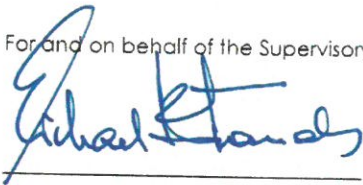 For and on behalf of the Supervisor
Michael